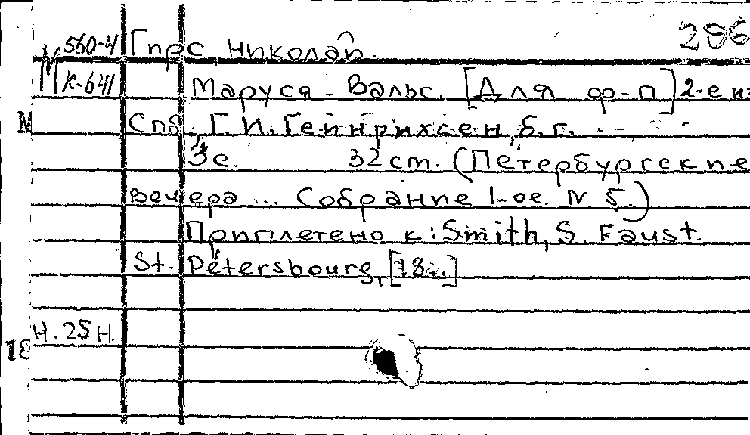 286
М 560-4 Гирс, Николай.
К-641 Маруся. Вальс. [Для ф-п] 2-е и
Спб., Г. И. Гейнрихсен, б. г.
3 с. 32 cm. (Петербургские
вечера ... Собрание 1-ое. N 5.)
Приплетено к: Smith, S. Faust.
St. Pétersbourg, [18
Н. 25 Н
18